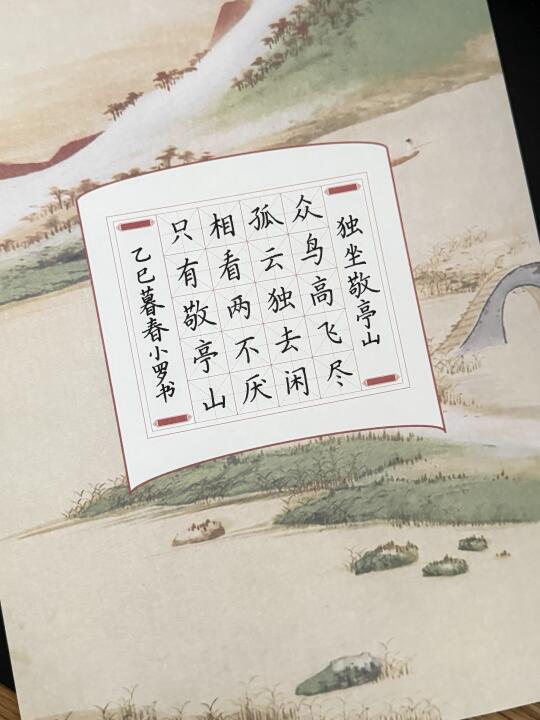 独坐敬亭山
众鸟高飞尽
孤云独去闲
相看两不厌
只有敬亭山
乙巳暮春小罗书